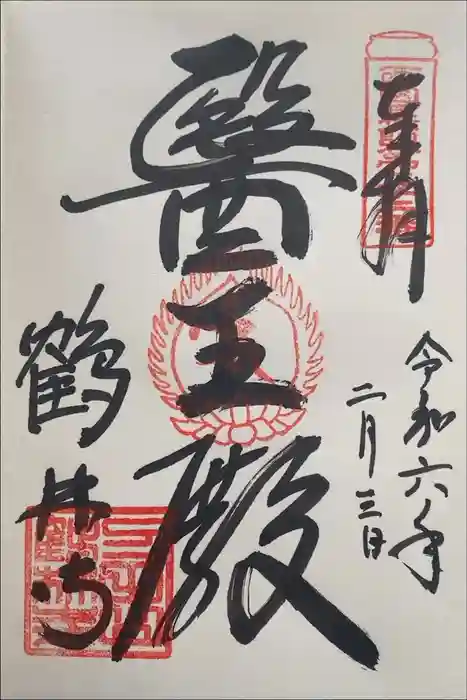 奉拝
令和六年
二月三日
醫王殿
鶴林寺